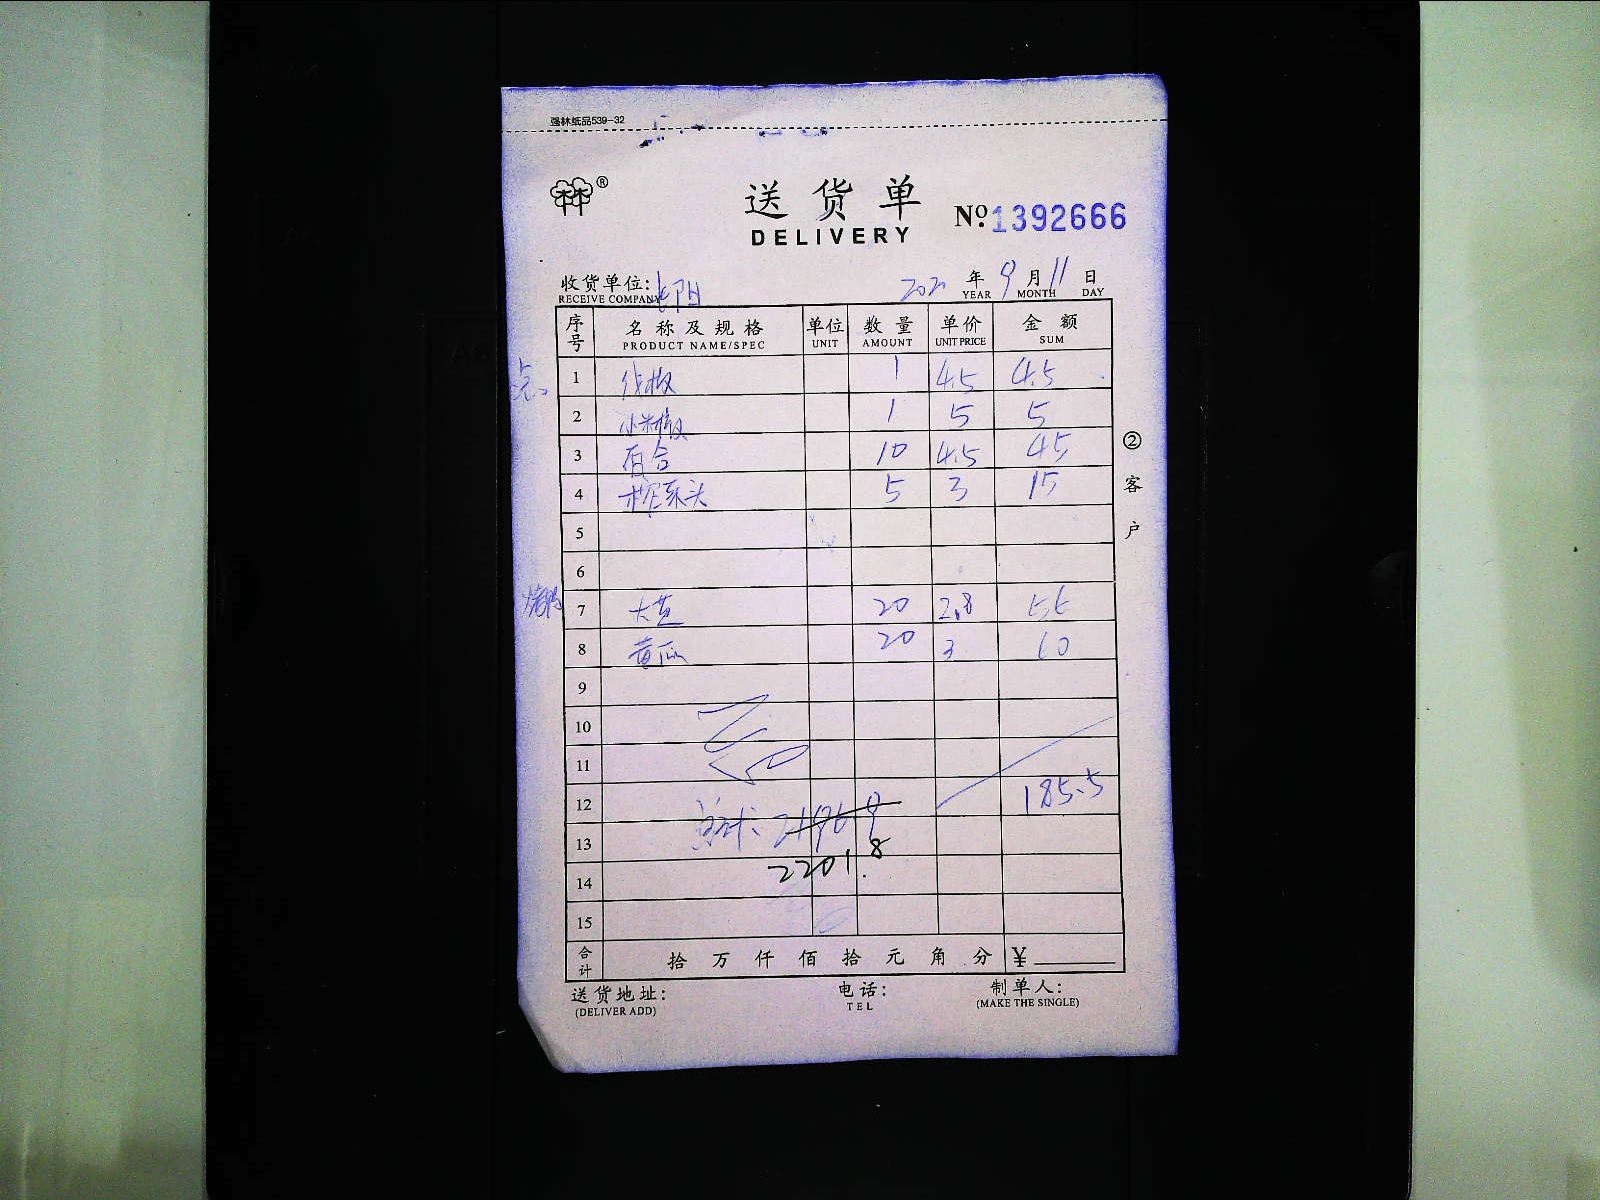 强林纸品539-32
®
送货单
DELIVERY
№ 1392666
收货单位:
RECEIVE COMPANY
2020 年 9 月 11 日
YEAR MONTH DAY
序号 名称及规格 单位 数量 单价 金额
PRODUCT NAME/SPEC UNIT AMOUNT UNIT PRICE SUM
1 线椒 1 4.5 4.5
2 小米椒 1 5 5
3 百合 10 4.5 45
4 5 3 15
5
6
7 大葱 20 2.8 56
8 黄瓜 20 3 60
9
10
11
12 185.5
总计: 2196.8
13
2201.8
14
15
合计 拾 万 仟 佰 拾 元 角 分 ¥
送货地址: 电话: 制单人:
(DELIVER ADD) TEL (MAKE THE SINGLE)
② 客户